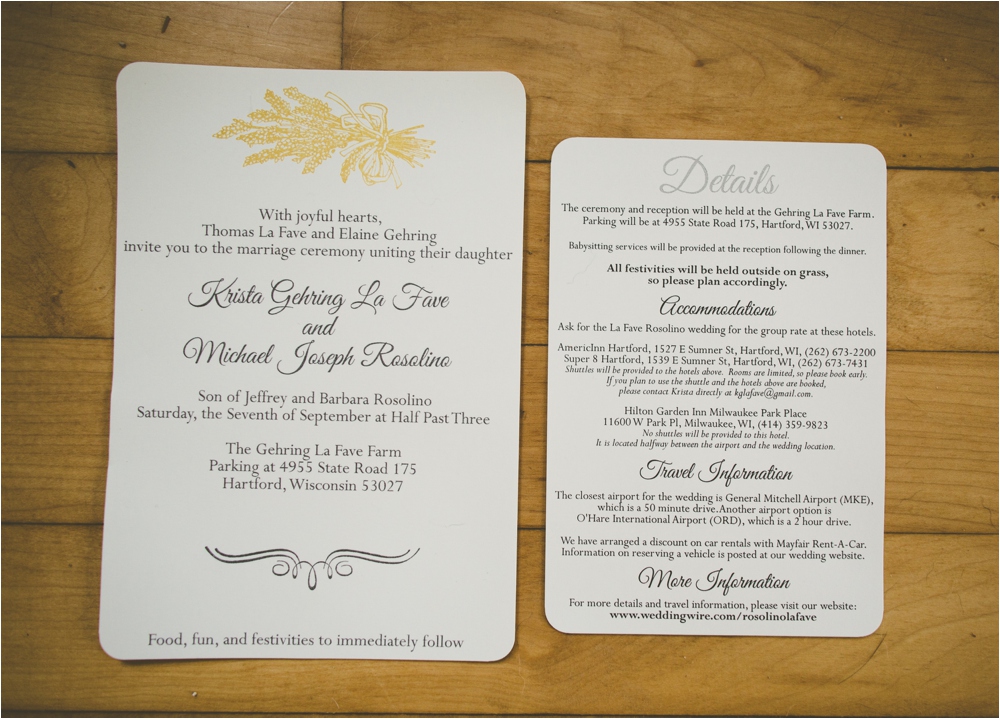 With joyful hearts,
Thomas La Fave and Elaine Gehring
invite you to the marriage ceremony uniting their daughter
Krista Gehring La Fave
and
Michael Joseph Rosolino
Son of Jeffrey and Barbara Rosolino
Saturday, the Seventh of September at Half Past Three
The Gehring La Fave Farm
Parking at 4955 State Road 175
Hartford, Wisconsin 53027
Food, fun, and festivities to immediately follow
Details
The ceremony and reception will be held at the Gehring La Fave Farm.
Parking will be at 4955 State Road 175, Hartford, WI 53027.
Babysitting services will be provided at the reception following the dinner.
All festivities will be held outside on grass,
so please plan accordingly.
Accommodations
Ask for the La Fave Rosolino wedding for the group rate at these hotels.
AmericInn Hartford, 1527 E Sumner St, Hartford, WI, (262) 673-2200
Super 8 Hartford, 1539 E Sumner St, Hartford, WI, (262) 673-7431
Shuttles will be provided to the hotels above. Rooms are limited, so please book early.
If you plan to use the shuttle and the hotels above are booked,
please contact Krista directly at kglafave@gmail.com.
Hilton Garden Inn Milwaukee Park Place
11600 W Park Pl, Milwaukee, WI, (414) 359-9823
No shuttles will be provided to this hotel.
It is located halfway between the airport and the wedding location.
Travel Information
The closest airport for the wedding is General Mitchell Airport (MKE),
which is a 50 minute drive. Another airport option is
O'Hare International Airport (ORD), which is a 2 hour drive.
We have arranged a discount on car rentals with Mayfair Rent-A-Car.
Information on reserving a vehicle is posted at our wedding website.
More Information
For more details and travel information, please visit our website:
www.weddingwire.com/rosolinolafave